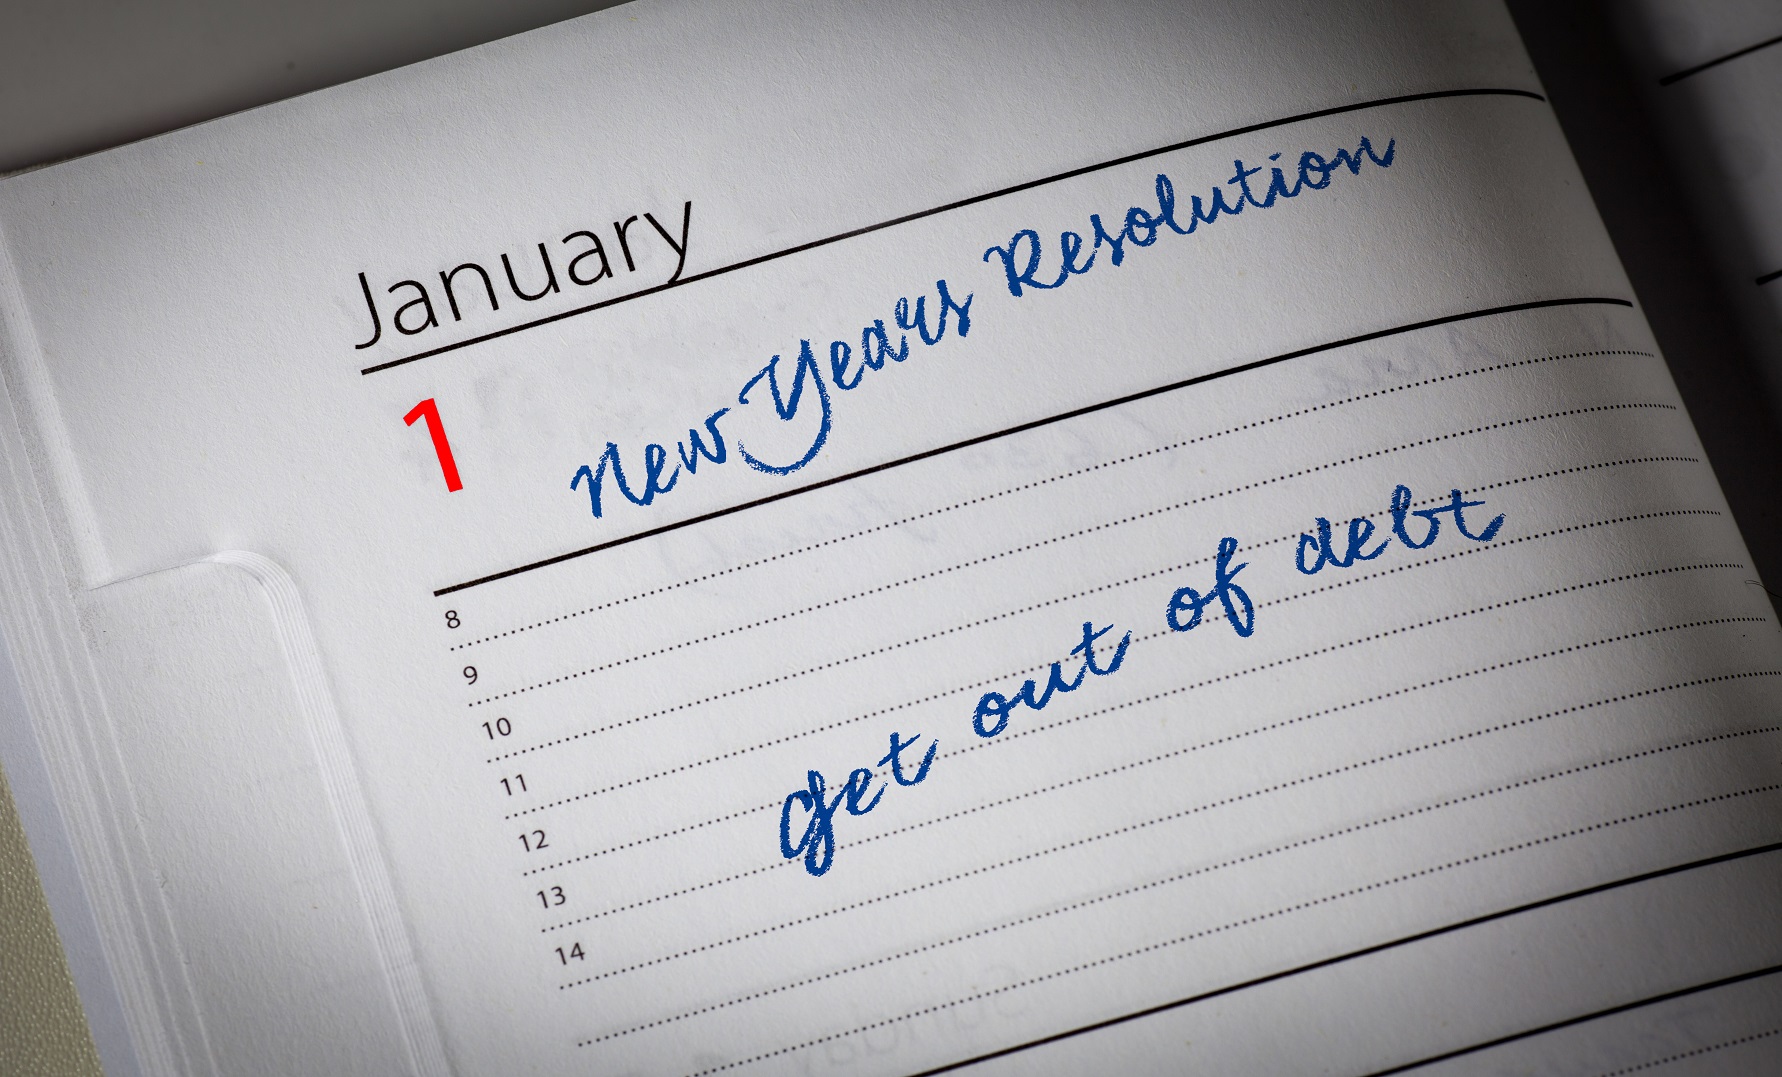 January
1 New Years Resolution
8
9
10
11
12
13
14
get out of debt